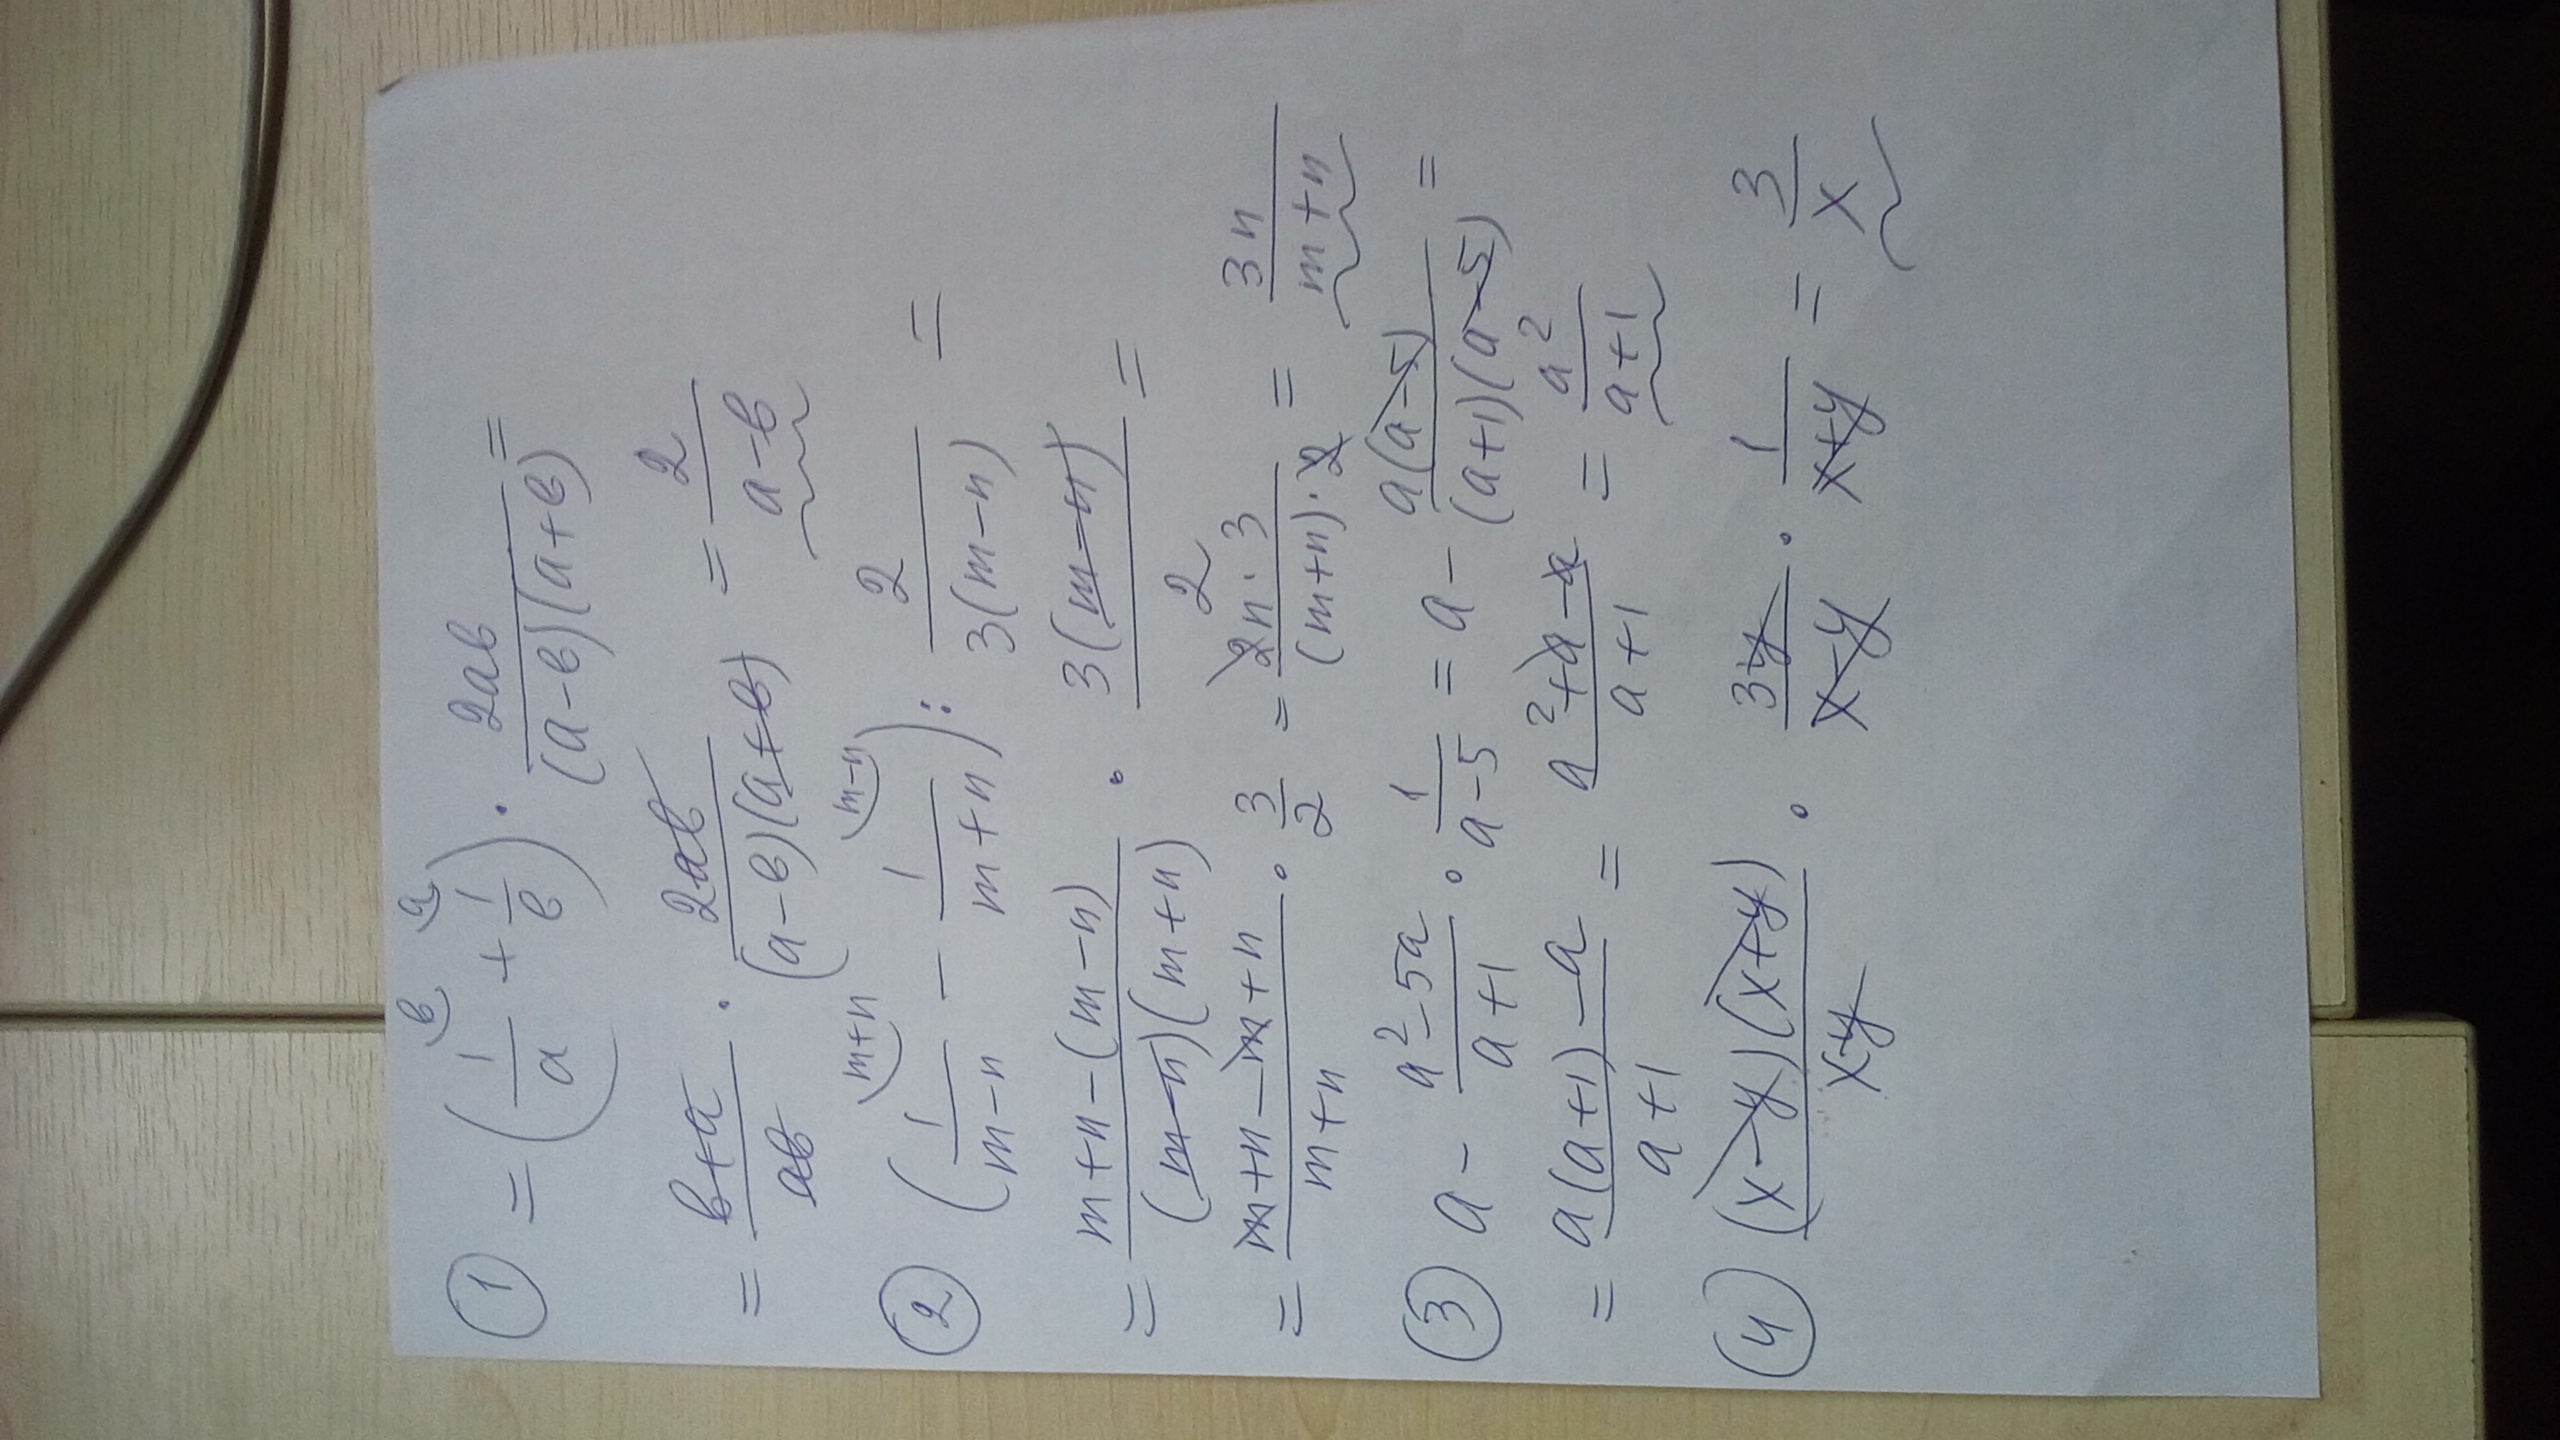 ① = (1/a + 1/в) · 2aв/((a-в)(a+в)) =
= (в+a)/(aв) · 2aв/((a-в)(a+в)) = 2/(a-в)
② (1/(m-n) - 1/(m+n)) : 2/(3(m-n)) =
= (m+n-(m-n))/((m-n)(m+n)) · 3(m-n)/2 =
= (m+n-m+n)/(m+n) · 3/2 = (2n·3)/((m+n)·2) = 3n/(m+n)
③ a - (a²-5a)/(a+1) · 1/(a-5) = a - a(a-5)/((a+1)(a-5)) =
= (a(a+1)-a)/(a+1) = (a²+a-a)/(a+1) = a²/(a+1)
④ ((x-y)(x+y))/(xy) · 3y/(x-y) · 1/(x+y) = 3/x